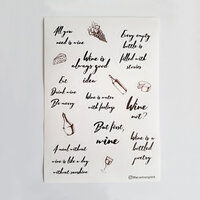 All you
need is wine
Every empty
bottle is
filled with
stories
Wine is
always good
idea
Eat
Drink wine
Be merry
Wine is water
with feelings
Wine
not?
But first,
wine
Wine is a
bottled
poetry
A meal without
wine is like a day
without sunshine